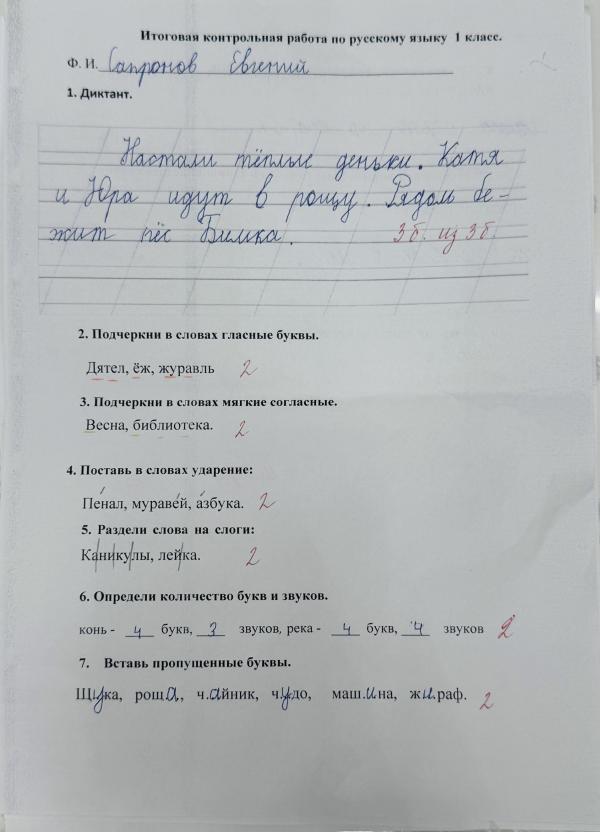 Итоговая контрольная работа по русскому языку 1 класс.
Ф. И. Сапронов Евгений
1. Диктант.
Настали тёплые деньки. Катя
и Юра идут в рощу. Рядом бе-
жит пёс Бимка. 3 б. из 3 б.
2. Подчеркни в словах гласные буквы.
Дятел, ёж, журавль 2
3. Подчеркни в словах мягкие согласные.
Весна, библиотека. 2
4. Поставь в словах ударение:
Пе́нал, мураве́й, а́збука. 2
5. Раздели слова на слоги:
Ка|ни|ку|лы, лей|ка. 2
6. Определи количество букв и звуков.
конь - 4 букв, 3 звуков, река - 4 букв, 4 звуков 2
7. Вставь пропущенные буквы.
Щука, роща, ч.айник, чудо, маш.ина, жи.раф. 2